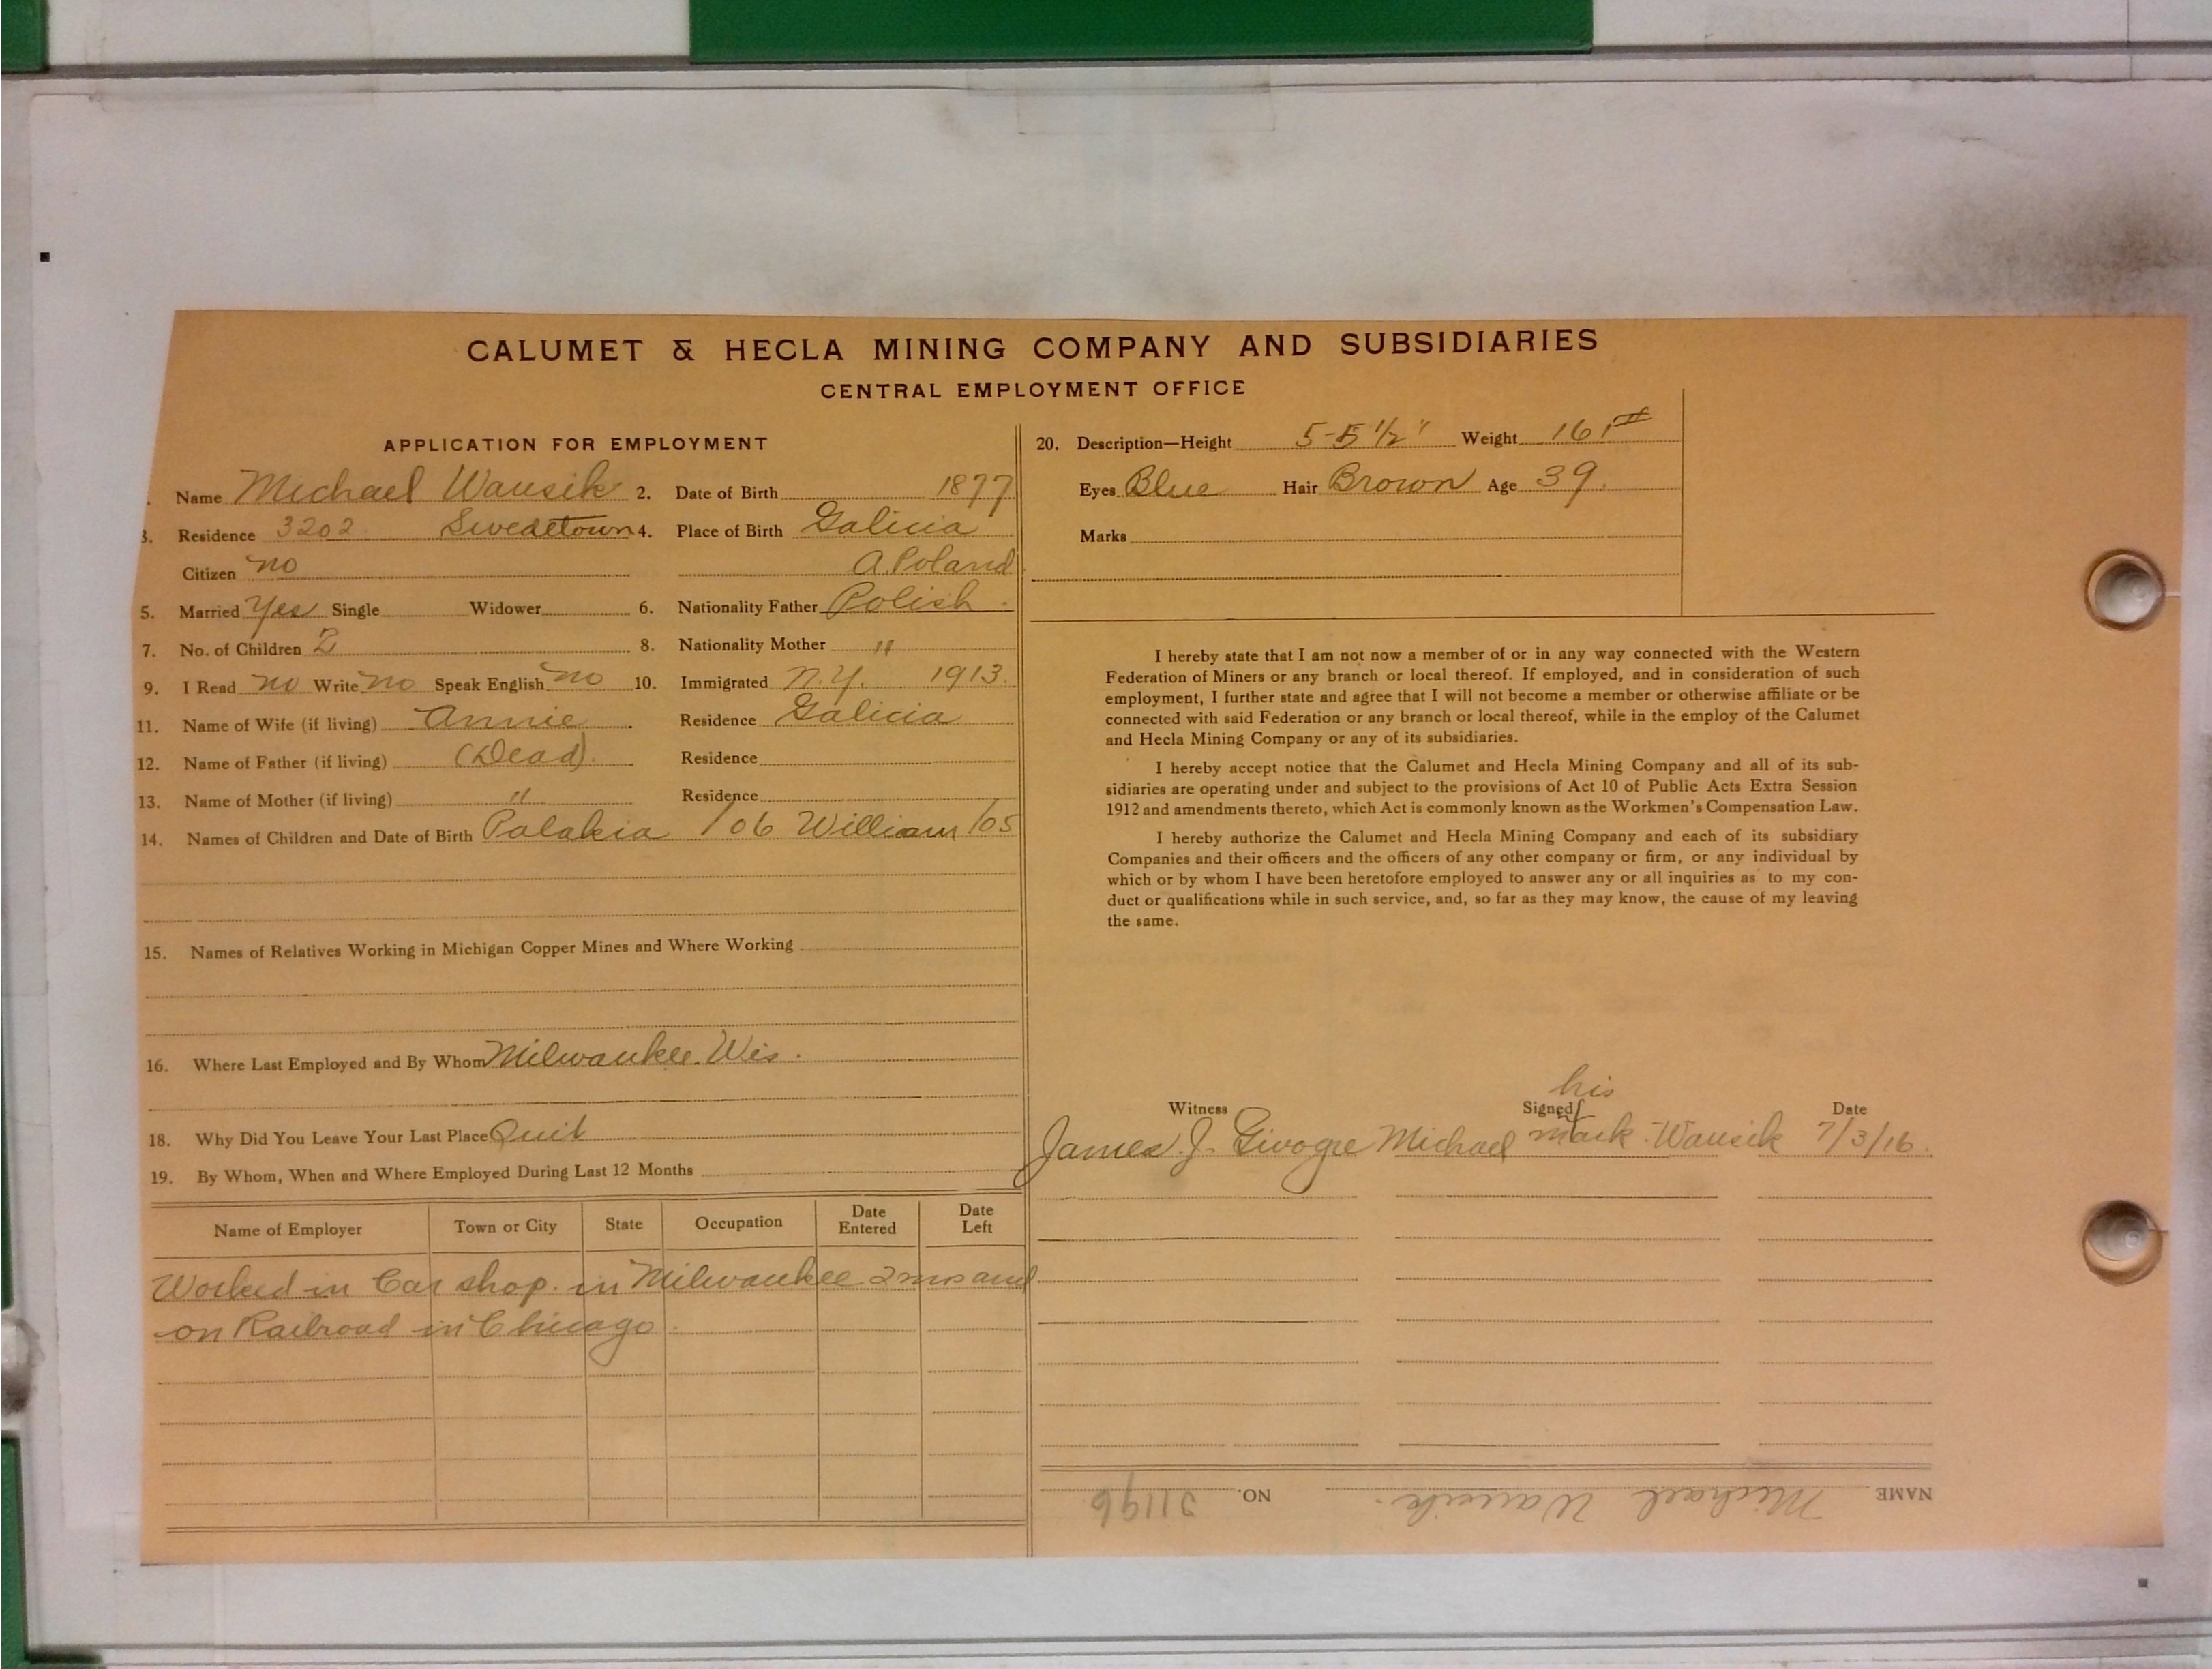 CALUMET & HECLA MINING COMPANY AND SUBSIDIARIES
CENTRAL EMPLOYMENT OFFICE
APPLICATION FOR EMPLOYMENT
Name Michael Wausik 2. Date of Birth 1877
3. Residence 3202 Swedetown 4. Place of Birth Galicia
Citizen no A. Poland
5. Married Yes Single Widower 6. Nationality Father Polish.
7. No. of Children 2 8. Nationality Mother "
9. I Read no Write no Speak English no 10. Immigrated N.Y. 1913.
11. Name of Wife (if living) Annie Residence Galicia
12. Name of Father (if living) (Dead). Residence
13. Name of Mother (if living) " Residence
14. Names of Children and Date of Birth Palakia /06 William /05
15. Names of Relatives Working in Michigan Copper Mines and Where Working
16. Where Last Employed and By Whom Milwaukee. Wis.
18. Why Did You Leave Your Last Place Quit
19. By Whom, When and Where Employed During Last 12 Months
Name of Employer Town or City State Occupation Date Entered Date Left
Worked in Car shop. in Milwaukee 2 mos and
on Railroad in Chicago.
20. Description—Height 5-5 1/2" Weight 161#
Eyes Blue Hair Brown Age 39.
Marks
I hereby state that I am not now a member of or in any way connected with the Western
Federation of Miners or any branch or local thereof. If employed, and in consideration of such
employment, I further state and agree that I will not become a member or otherwise affiliate or be
connected with said Federation or any branch or local thereof, while in the employ of the Calumet
and Hecla Mining Company or any of its subsidiaries.
I hereby accept notice that the Calumet and Hecla Mining Company and all of its sub-
sidiaries are operating under and subject to the provisions of Act 10 of Public Acts Extra Session
1912 and amendments thereto, which Act is commonly known as the Workmen's Compensation Law.
I hereby authorize the Calumet and Hecla Mining Company and each of its subsidiary
Companies and their officers and the officers of any other company or firm, or any individual by
which or by whom I have been heretofore employed to answer any or all inquiries as to my con-
duct or qualifications while in such service, and, so far as they may know, the cause of my leaving
the same.
his
Witness Signed Date
James. J. Michael mark. Wausik 7/3/16.
NAME Michael Wausik. NO. 21196